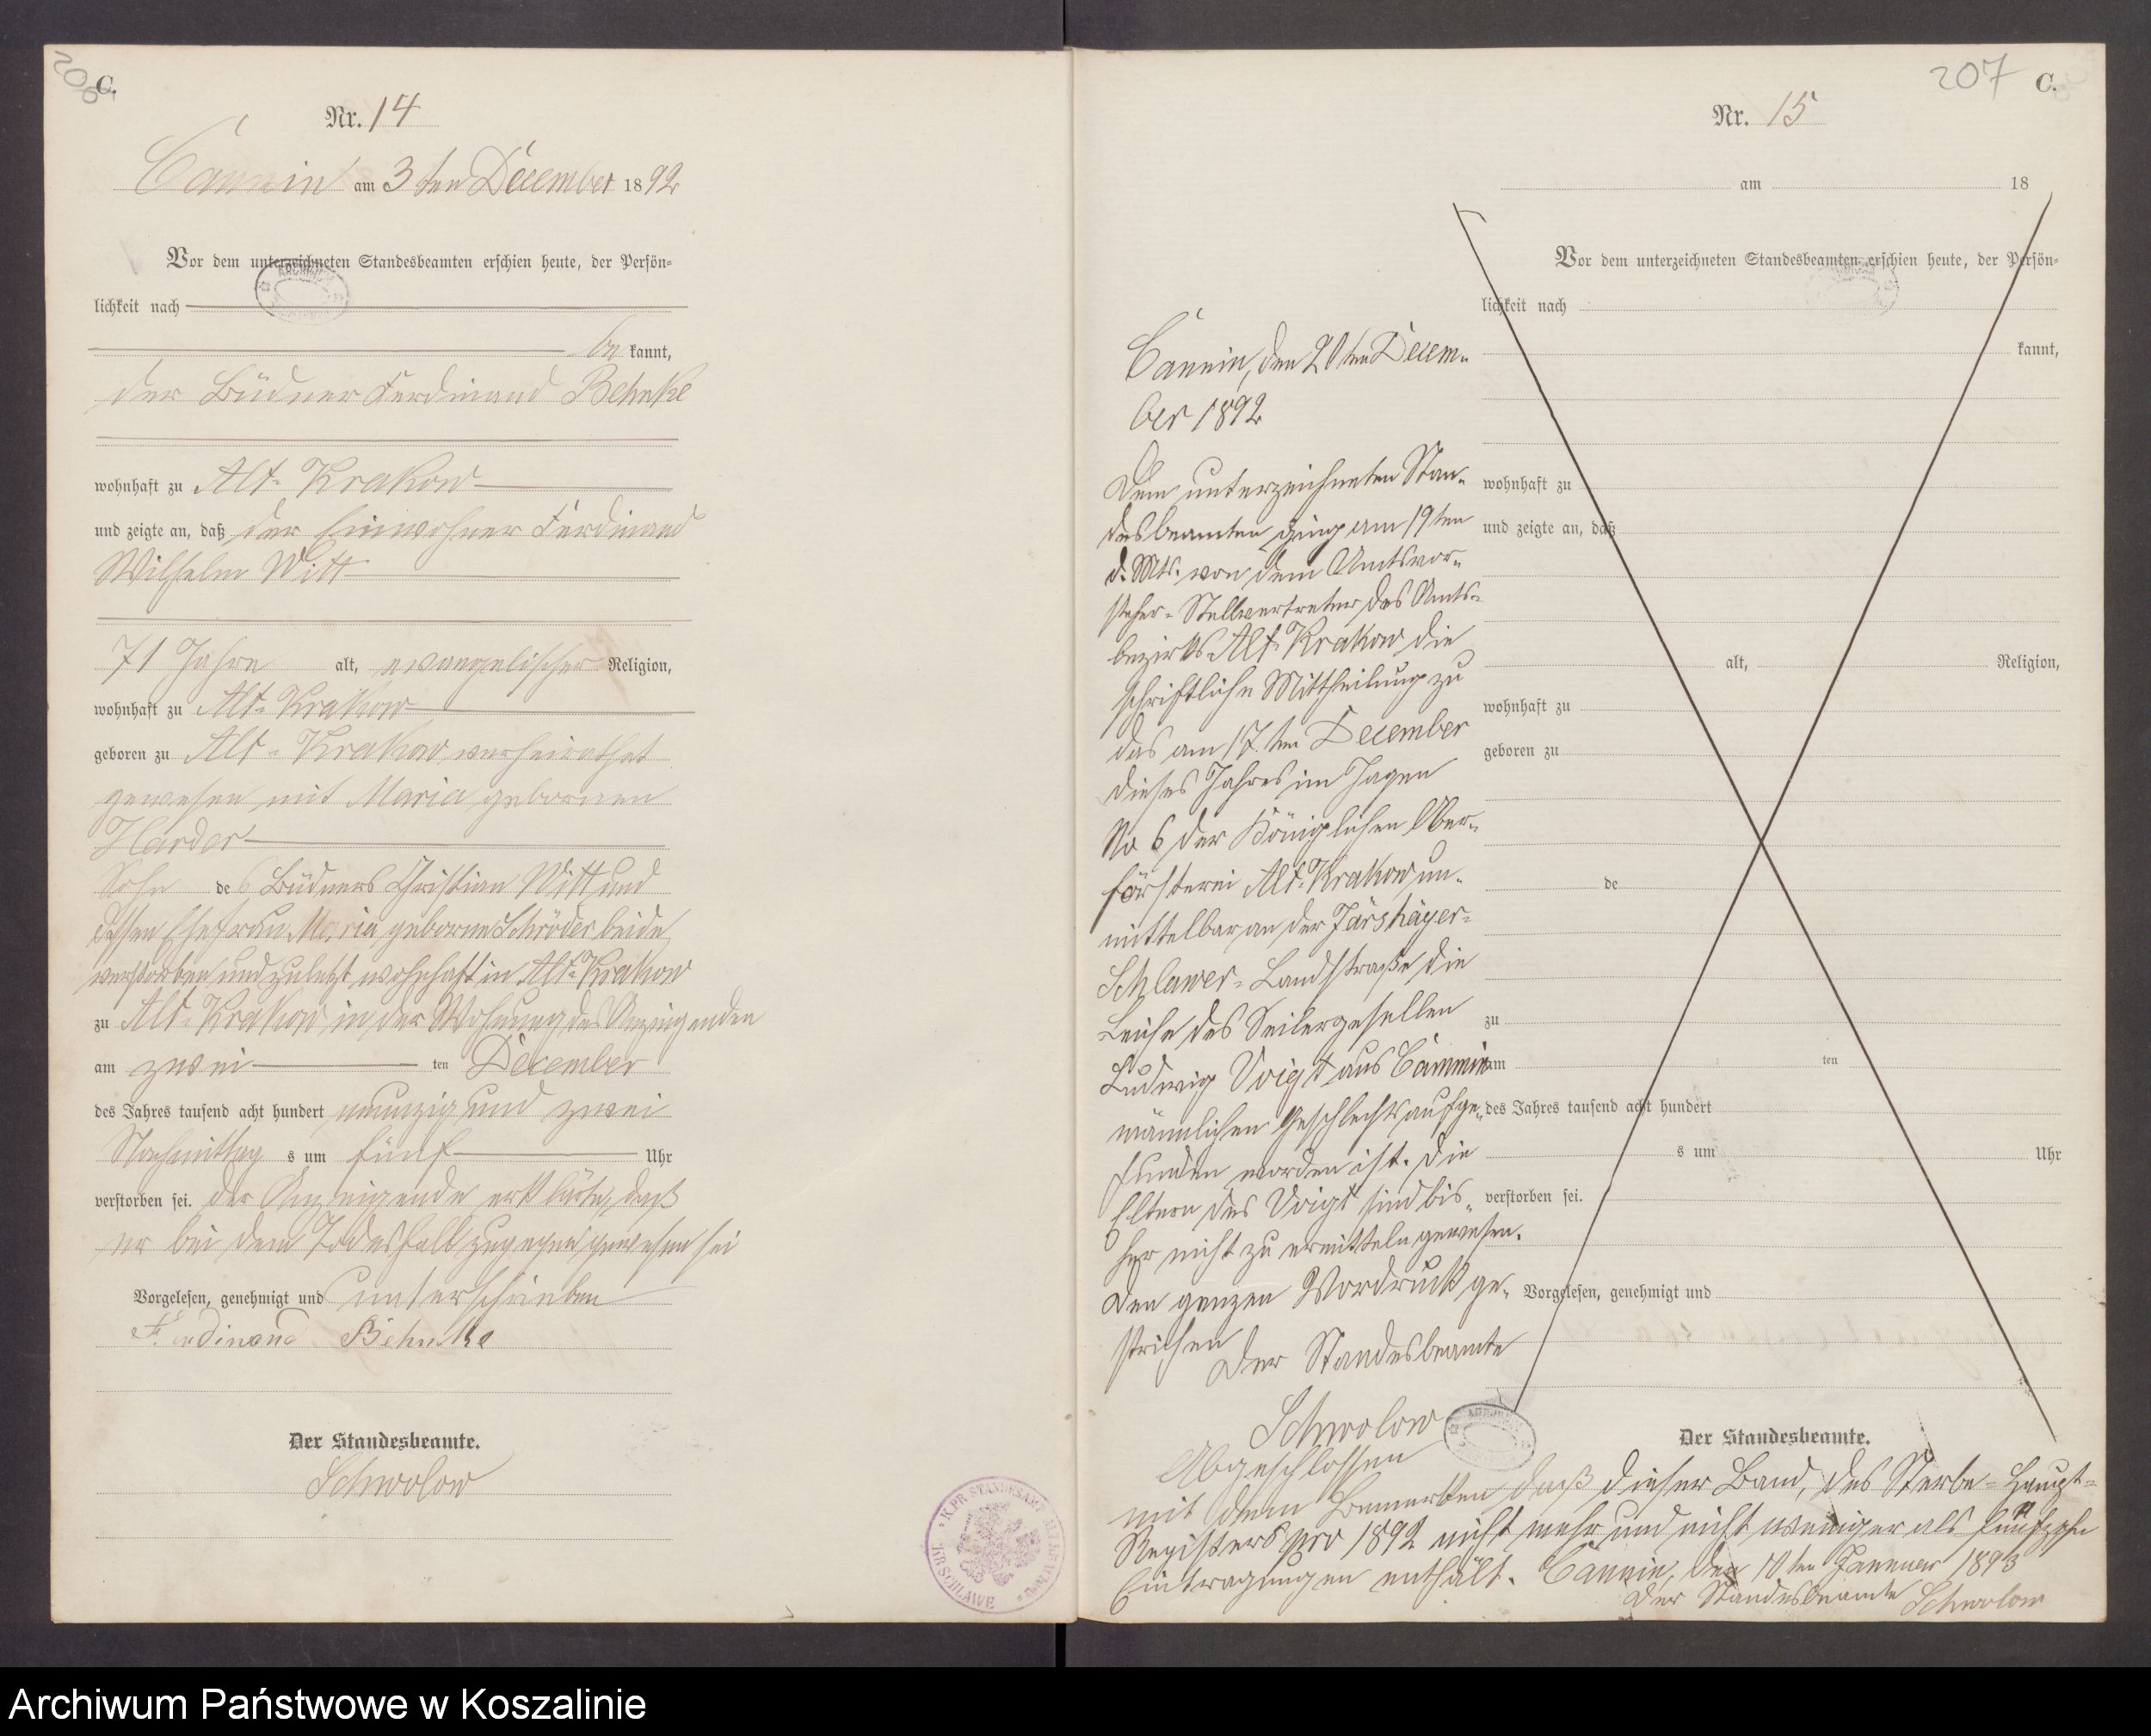 206
C.
Nr. 14
Cannin am 3ten December 1892
Vor dem unterzeichneten Standesbeamten erschien heute, der Persön=
lichkeit nach
be kannt,
der Büdner Ferdinand Behnke
wohnhaft zu Alt-Krakow
und zeigte an, daß der Einwohner Ferdinand
Wilhelm Witt
71 Jahre alt, evangelischer Religion,
wohnhaft zu Alt-Krakow
geboren zu Alt-Krakow, verheirathet
gewesen mit Maria gebornen
Harder
Sohn des Büdners Christian Witt und
dessen Ehefrau Maria geborne Schröder beide
verstorben und zuletzt wohnhaft in Alt-Krakow
zu Alt-Krakow in der Wohnung des Anzeigenden
am zwei ten December
des Jahres tausend acht hundert neunzig und zwei
Nachmittag s um fünf Uhr
verstorben sei. Der Anzeigende erklärte, daß
er bei dem Todesfall zugegen gewesen sei
Vorgelesen, genehmigt und unterschrieben
Ferdinand Behnke
Der Standesbeamte.
Schwolow
KPR STANDESAMT
KR. SCHLAWE
207
C.
Nr. 15
am 18
Vor dem unterzeichneten Standesbeamten erschien heute, der Persön=
lichkeit nach
kannt,
wohnhaft zu
und zeigte an, daß
alt, Religion,
wohnhaft zu
geboren zu
de
zu
am ten
des Jahres tausend acht hundert
s um Uhr
verstorben sei.
Vorgelesen, genehmigt und
Der Standesbeamte.
Cannin, den 20ten Decem-
ber 1892
Dem unterzeichneten Stan-
desbeamten ging am 19ten
d. Mts. von dem Amtsvor-
steher-Stellvertreter des Amts-
bezirks Alt-Krakow die
schriftliche Mittheilung zu
das am 17.ten December
dieses Jahres im Jagen
No 6 der Königlichen Ober-
försterei Alt-Krakow un-
mittelbar an der Järshäger-
Schlawer-Landstraße die
Leiche des Seilergesellen
Ludwig Voigt aus Cannin
männlichen Geschlechts aufge-
funden worden ist. Die
Eltern des Voigt sind bis-
her nicht zu ermitteln gewesen.
Den ganzen Vordruck ge-
strichen
Der Standesbeamte
Schwolow
Abgeschlossen
mit dem Bemerken daß dieser Band, des Sterbe-Haupt-
Registers pro 1892 nicht mehr und nicht weniger als fünfzehn
Eintragungen enthält. Cannin, den 10ten Januar 1893
Der Standesbeamte Schwolow
Archiwum Państwowe w Koszalinie